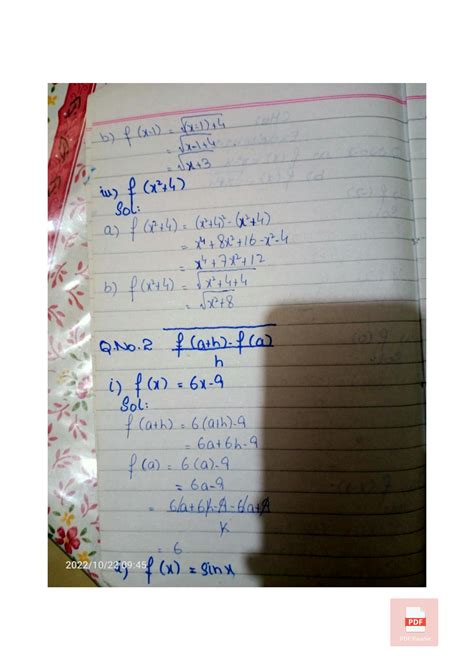 b) f(x-1) = √(x-1)+4
= √x-1+4
= √x+3
iii) f(x²+4)
Sol:
a) f(x²+4) = (x²+4)² - (x²+4)
= x⁴+8x²+16-x²-4
= x⁴+7x²+12
b) f(x²+4) = √x²+4+4
= √x²+8
Q.No.2 f(a+h)-f(a)
h
i) f(x) = 6x-9
Sol:
f(a+h) = 6(a+h)-9
= 6a+6h-9
f(a) = 6(a)-9
= 6a-9
= 6a+6h-9-6a+9
h
= 6
f(x) = sinx
2022/10/22 09:45
PDF